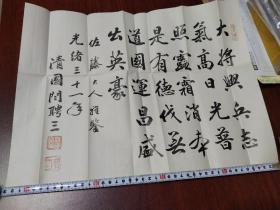 大将興兵志
氣高日光普
照靈霜消本
是有德伐無
道國運昌盛
出英豪
佐藤大人雅鑒
光緒三十一年
清國閆聘三